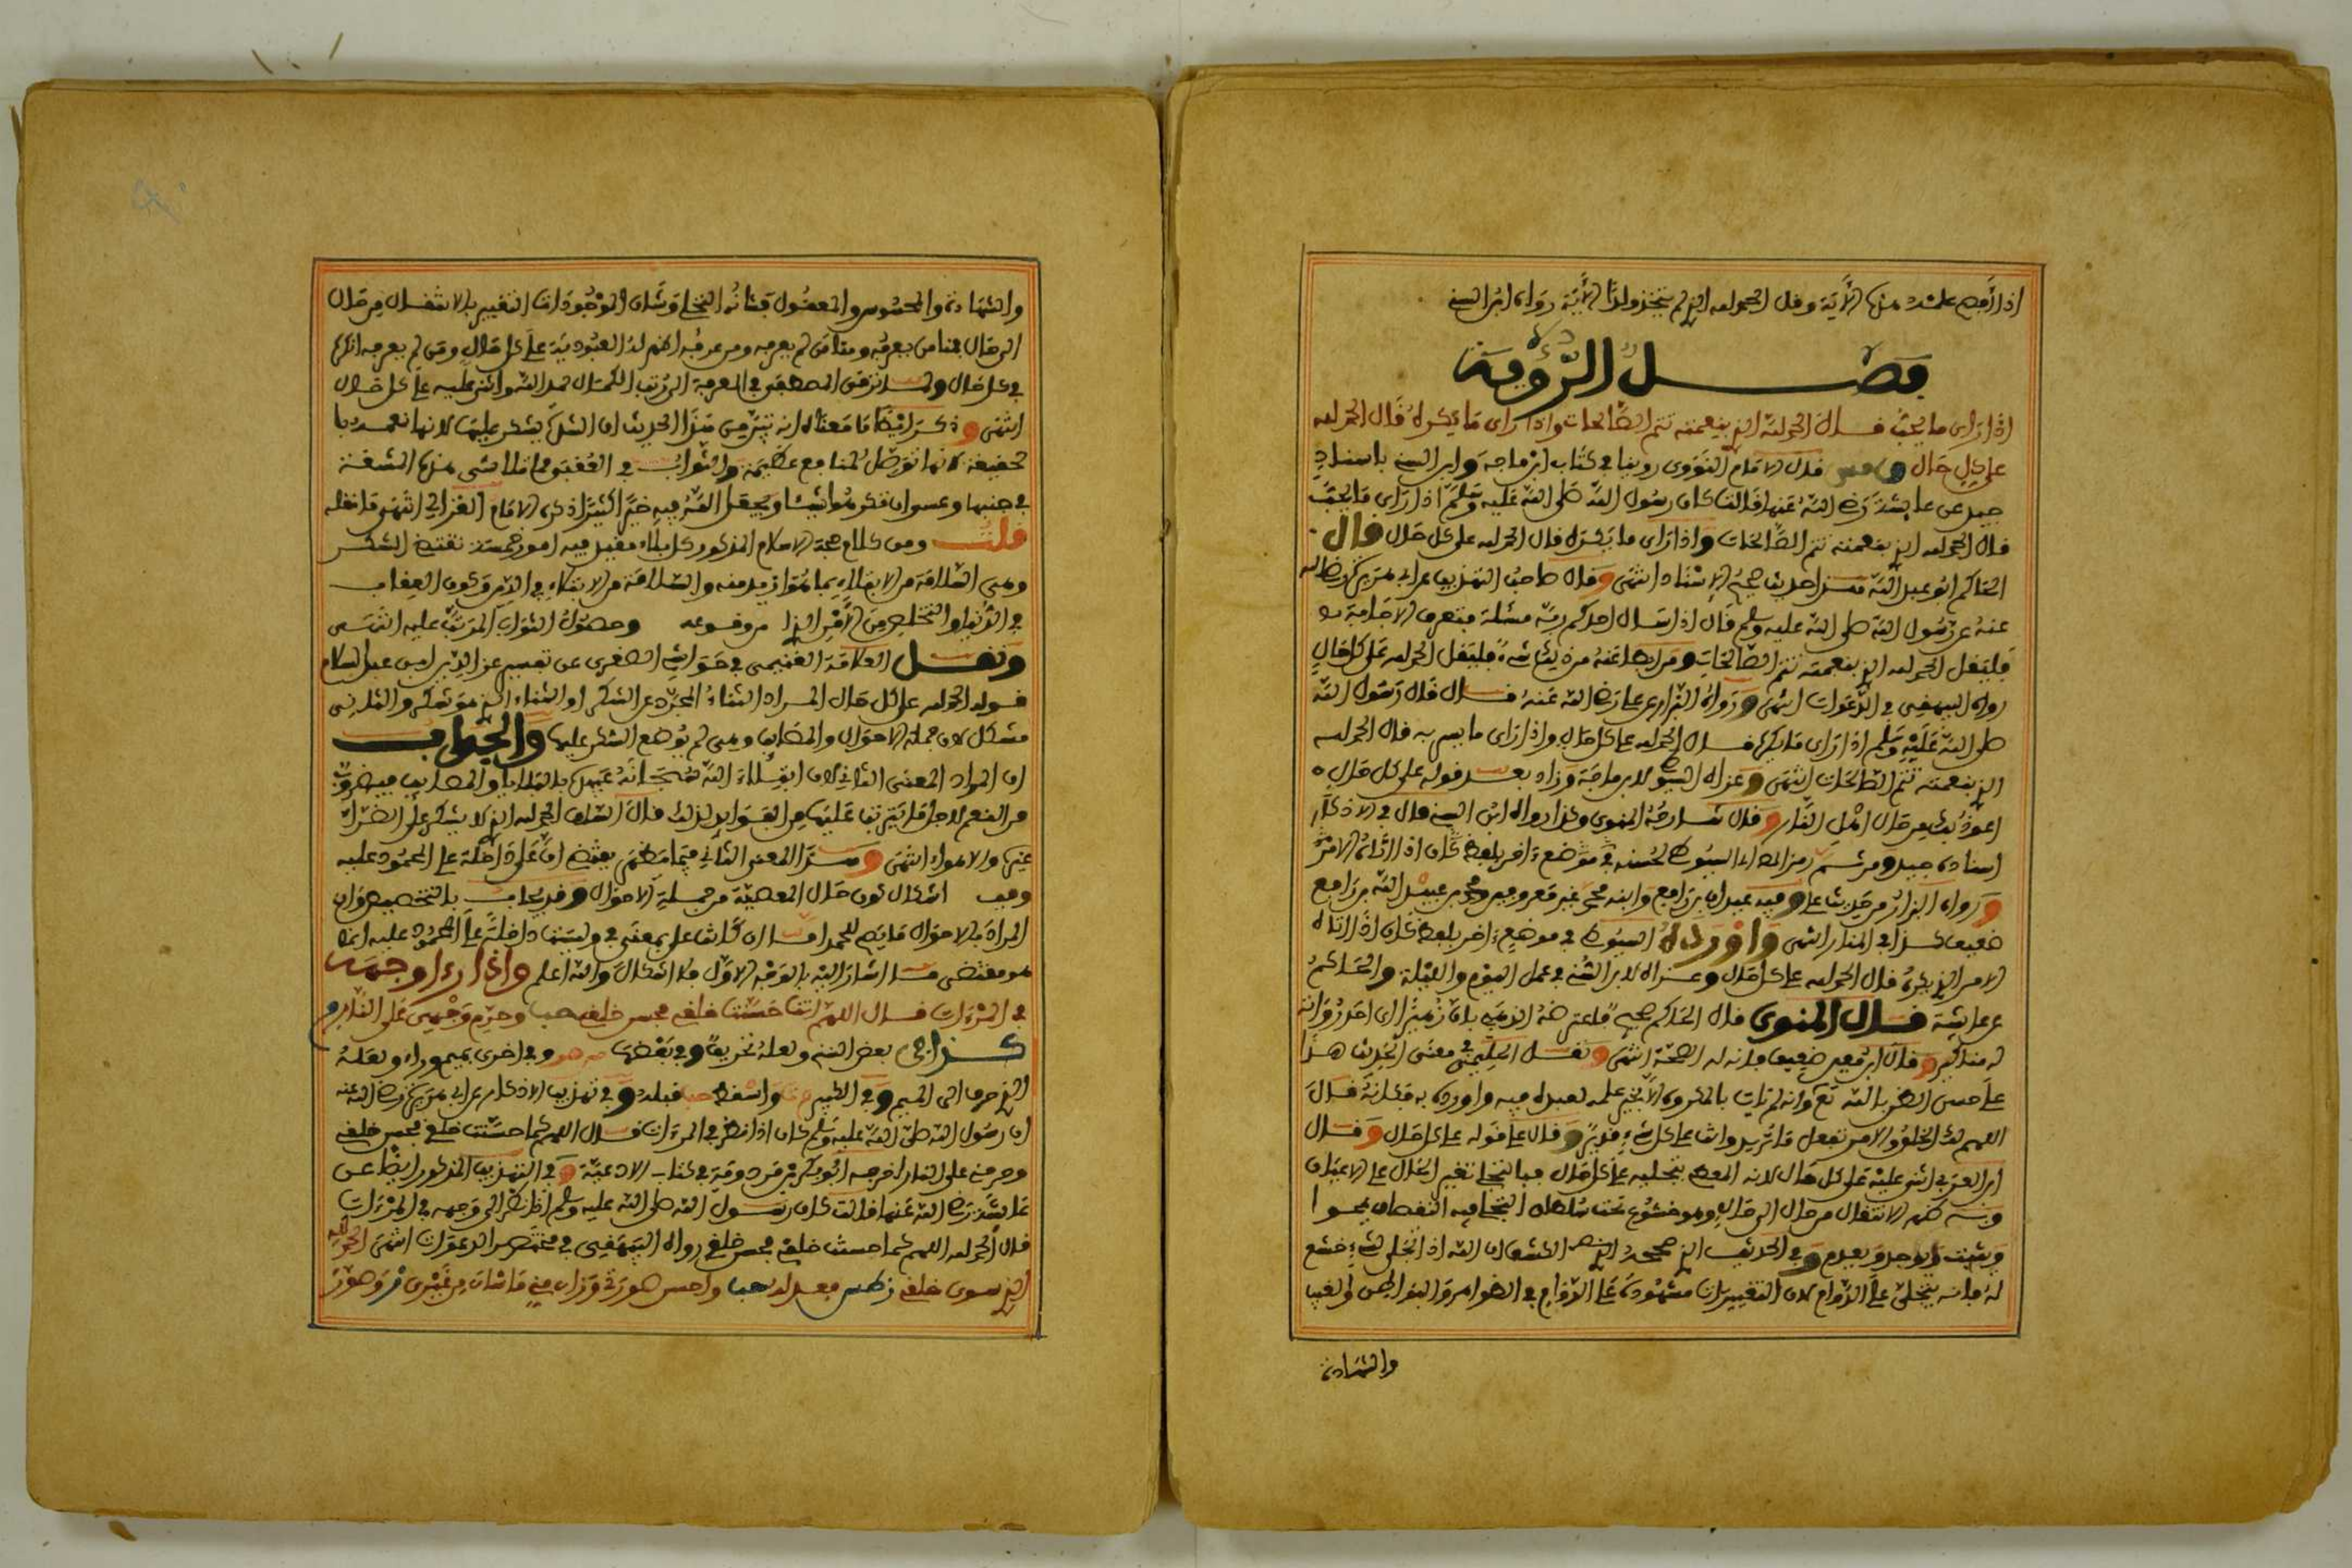 اذا أفصح علمه منها الآية وقل الحمد لله الذي لم يتخذ ولدا الآية رواه ابن السني
فصل الرؤية
اذا راى ما يحب قال الحمد لله الذي بنعمته تتم الصالحات واذا راى ما يكره قال الحمد لله
على كل حال قال الامام النووي روينا في كتاب ابن ماجه وابن السني باسناد
جيد عن عايشة رضي الله عنها قالت كان رسول الله صلى الله عليه وسلم اذا راى ما يحب
قال الحمد لله الذي بنعمته تتم الصالحات واذا راى ما يكره قال الحمد لله على كل حال قال
الحاكم ابو عبد الله هذا حديث صحيح الاسناد انتهى وقال صاحب التهذيب عن ابي هريرة رضي الله
عنه عن رسول الله صلى الله عليه وسلم قال اذا سال احدكم ربه مسئلة فتعرف الاجابة
فليقل الحمد لله الذي بنعمته تتم الصالحات ومن ابطا عنه من ذلك شيء فليقل الحمد لله على كل حال
رواه البيهقي في الدعوات انتهى ورواه البزار عن علي رضي الله عنه قال كان رسول الله
صلى الله عليه وسلم اذا راى ما يكره قال الحمد لله على كل حال واذا راى ما يسر به قال الحمد لله
الذي بنعمته تتم الصالحات انتهى وعزاه السيوطي لابن ماجة وزاد بعد قوله على كل حال
اعوذ بك من حال اهل النار وقال شارحه المنوي وكذا رواه ابن السني قال في الاذكار
اسناده جيد ومن ثم رمز المؤلف السيوطي لحسنه في موضع اخر بلفظ كان اذا اتاه الامر
ورواه البزار من حديث علي وفيه عبد الله بن رافع وابنه محمد غير معروفين ومحمد بن عبيد الله بن رافع
ضعيف كذا في المنار انتهى واورده السيوطي في موضع اخر بلفظ كان اذا اتاه
الامر الذي يكره قال الحمد لله على كل حال وعزاه لابن السني في عمل اليوم والليلة والحاكم
عن عايشة قال المنوي قال الحاكم صحيح فاعترضه الذهبي بان زهيرا
له مناكير وقال ابن معين ضعيف فانى له الصحة انتهى ونقل الحليمي في معنى الحديث هذا
على حسن الظن بالله تع وانه لم يات بالمكروه الا لخير علمه لعبده فيه واراده به فكانه قال
اللهم لك الخلق والامر تفعل ما تريد وانت على كل شيء قدير وقال على قوله على كل حال وقال
ابن العربي اثنى عليه على كل حال لانه المعطي بتجليه على كل حال فبالتجلي تغير الحال على الاعيان
وبه ظهر الانتقال من حال الى حال وهو خشوع تحت سلطان التجلي فيه النقصان يمحوا
ويثبت ويوجد ويعدم وفي الحديث الذي صححه الكشف ان الله اذا تجلى لشيء خشع
له فانه يتجلى على الدوام لان التغييرات مشهودة على الدوام في الظواهر والبواطن والغيب
والشهادة
والشهادة والمحسوس والمعقول فشانه التجلي وشان الموجودات التغيير بالانتقال من حال
الى حال فمنا من يعرفه ومنا من لم يعرفه ومن عرفه اظهر له العبودية على كل حال ومن لم يعرفه انكره
في كل حال ولما ترقى المصطفى في المعرفة الى رتب الكمال حمد الله واثنى عليه على كل حال
انتهى وذكر ايضا ما معناه انه يترمى هذا الحديث ان الشدائد يشكر عليها لانها نعم
حقيقة لانها توصل لمنافع عظيمة والثواب في العقبى ما تتلاشى منها المشقة
في جنبها وعسى ان تكرهوا شيئا ويجعل الله فيه خيرا كثيرا ذكره الامام الغزالي انتهى ما نقله
قلت ومن كلام حجة الاسلام المذكور كل بلاء فقيل فيه امور خمسة تقتضي الشكر
وهي السلامة من الابتلاء بما هو ازيد منه والسلامة من الابتلاء في الدين وكون العقاب
في الدنيا والتخلص من الامر الذي وقوعه وحصول الثواب المرتب عليه انتهى
ونقل العلامة الغنيمي في حواشي الصغرى عن تفسير عز الدين ابن عبد السلام
قوله الحمد لله على كل حال المراد الثناء المجرد عن الشكر او الثناء الذي هو شكر والثاني
مشكل لان جملة الاحوال والمصائب وهي لم يوضع الشكر عليها والجواب
ان المراد المعنى الثاني لان ابتلاء الله سبحانه عبده بالبلايا والمصائب فيه ضروب
من النعم لاجل ما يترتب عليها من الفوايد لذلك قال السلف الحمد لله الذي لا يشكر على الضراء
غيره والاهواء انتهى وهذا المعنى الثاني فيما يظهر يقتضي ان على داخلة على المحمود عليه
وفيه اشكال كون حال المعصية من جملة الاحوال وقد يجاب بالتخصيص وان
المراد بالاحوال ما يصح للحمد اما ان كانت على بمعنى في وليست داخلة على المحمود عليه كما
هو مقتضى ما اشار اليه بالوجه الاول فلا اشكال والله اعلم واذا راى وجهه
في المرءات قال اللهم انت حسنت خلقي فحسن خلقي حب وحرم وجهي على النار
كذا في بعض النسخ ولعله تحريف وفي بعضها مه وفي اخرى بميم وراء ولعله
ان رسول الله صلى الله عليه وسلم كان اذا نظر في المراة قال اللهم كما حسنت خلقي فحسن خلقي
وحرمني على النار اخرجه ابو بكر بن مردوية في كتاب الادعية وفي التهذيب المذكور ايضا عن
عايشة رضي الله عنها قالت كان رسول الله صلى الله عليه وسلم اذا نظر الى وجهه في المرءات
قال الحمد لله اللهم كما حسنت خلقي فحسن خلقي رواه البيهقي في مختصر الدعوات انتهى الحمد لله
الذي سوى خلقي واحسن صورتي وزان مني ما شان من غيري